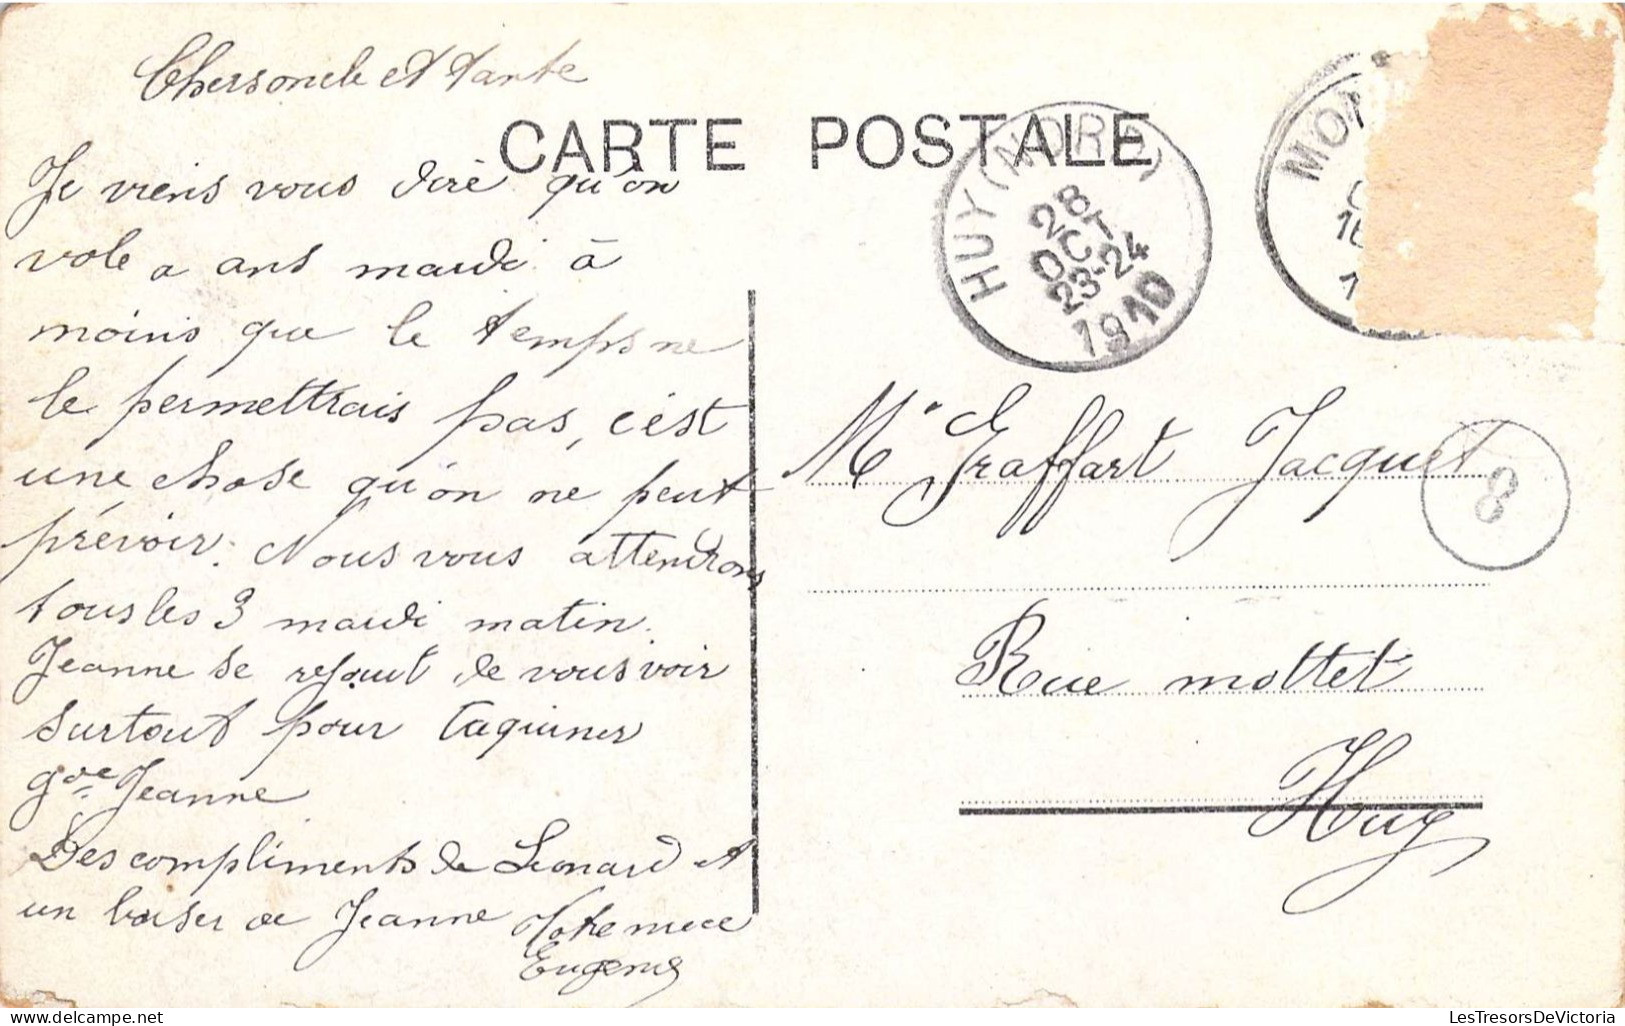 Chers oncle et tante
CARTE POSTALE
Je viens vous dire qu'on
vole a ans mardi à
moins que le temps ne
le permettrais pas, c'est
une chose qu'on ne peut
prévoir. Nous vous attendrons
tous les 3 mardi matin.
Jeanne se rejouit de vous voir
surtout pour taquiner
gde Jeanne
Des compliments de Leonard et
un baiser de Jeanne Votre niece
Eugenie
HUY (NORD)
28
OCT
23-24
1910
MO
1
Mr Graffart Jacquet
8
Rue mottet
Huy
LesTresorsDeVictoria